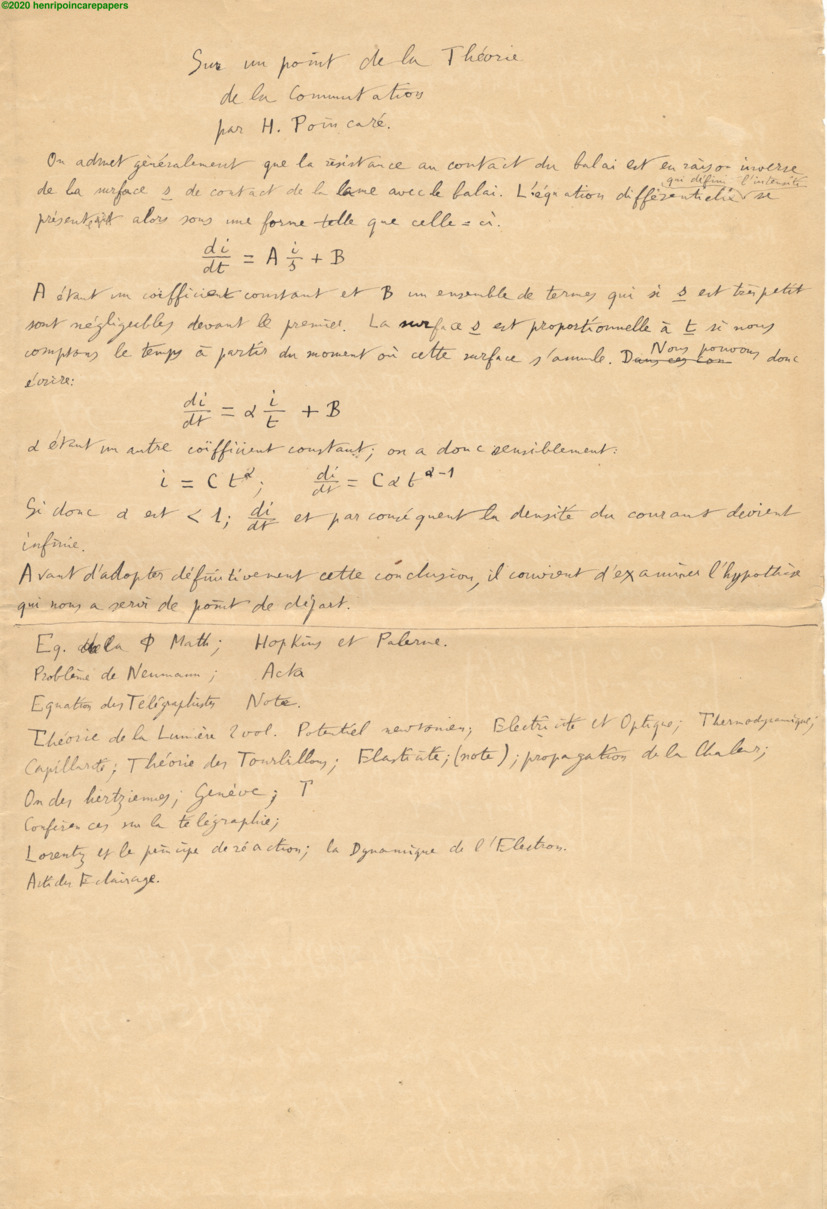 ©2020 henripoincarepapers
Sur un point de la Théorie
de la Commutation
par H. Poincaré.
On admet généralement que la résistance au contact du balai est en raison inverse
de la surface s de contact de la lame avec le balai. L'équation différentielle qui définit l'intensité se
présente alors sous une forme telle que celle-ci.
di/dt = A i/s + B
A étant un coëfficient constant et B un ensemble de termes qui si s est très petit
sont négligeables devant le premier. La surface s est proportionnelle à t si nous
comptons le temps à partir du moment où cette surface s'annule. Nous pouvons donc
écrire:
di/dt = α i/t + B
α étant un autre coëfficient constant; on a donc sensiblement:
i = C t^α; di/dt = C α t^(α-1)
Si donc α est < 1; di/dt et par conséquent la densité du courant devient
infinie.
Avant d'adopter définitivement cette conclusion, il convient d'examiner l'hypothèse
qui nous a servi de point de départ.
Eq. de la Φ Math; Hopkins et Palerme.
Problème de Neumann; Acta
Equation des Télégraphistes Note.
Théorie de la Lumière 2 vol. Potentiel newtonien; Electricité et Optique; Thermodynamique;
Capillarité; Théorie des Tourbillons; Elasticité; (note); propagation de la Chaleur;
Ondes hertziennes; Genève; T
Conférences sur la télégraphie;
Lorentz et le principe de réaction; la Dynamique de l'Electron.
Eclairage.